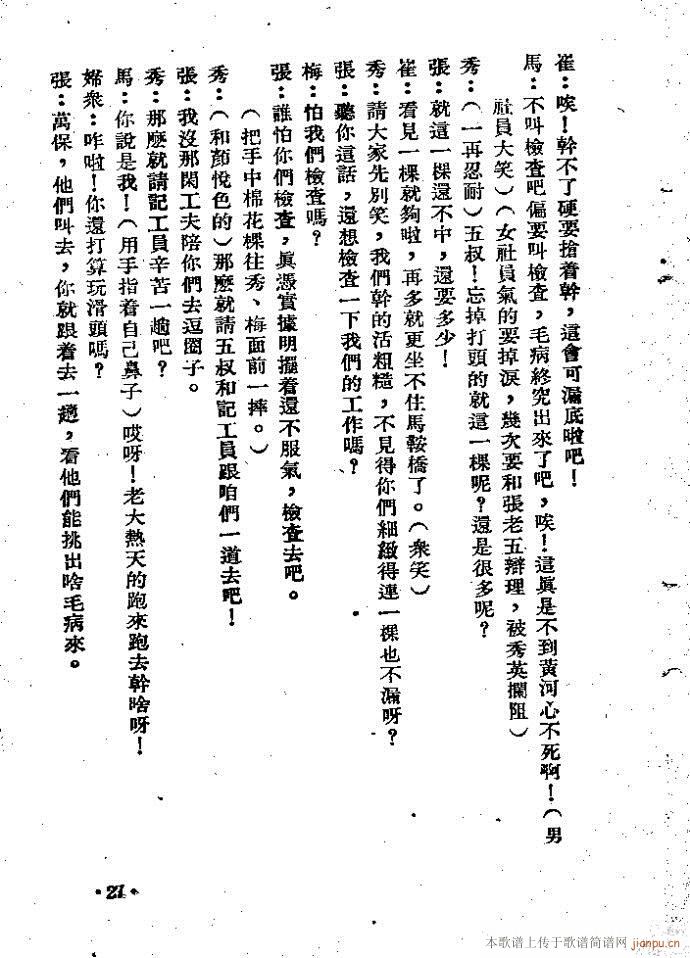 崔：唉！幹不了硬要搶着幹，這會可漏底啦吧！
馬：不叫檢查吧偏要叫檢查，毛病終究出來了吧，唉！這眞是不到黃河心不死啊！（男
社員大笑）（女社員氣的要掉淚，幾次要和張老五辯理，被秀英攔阻）
秀：（一再忍耐）五叔！忘掉打頭的就這一棵呢？還是很多呢？
張：就這一棵還不中，還要多少！
崔：看見一棵就夠啦，再多就更坐不住馬鞍橋了。（衆笑）
秀：請大家先別笑，我們幹的活粗糙，不見得你們細緻得連一棵也不漏呀？
張：聽你這話，還想檢查一下我們的工作嗎？
梅：怕我們檢查嗎？
張：誰怕你們檢查，眞憑實據明擺着還不服氣，檢查去吧。
（把手中棉花棵往秀、梅面前一摔。）
秀：（和顏悅色的）那麽就請五叔和記工員跟咱們一道去吧！
張：我沒那閑工夫陪你們去逗圈子。
秀：那麽就請記工員辛苦一趟吧？
馬：你說是我！（用手指着自己鼻子）哎呀！老大熱天的跑來跑去幹啥呀！
婦衆：咋啦！你還打算玩滑頭嗎？
張：萬保，他們叫去，你就跟着去一趟，看他們能挑出啥毛病來。
·27·
本歌谱上传于歌谱简谱网
jianpu.cn